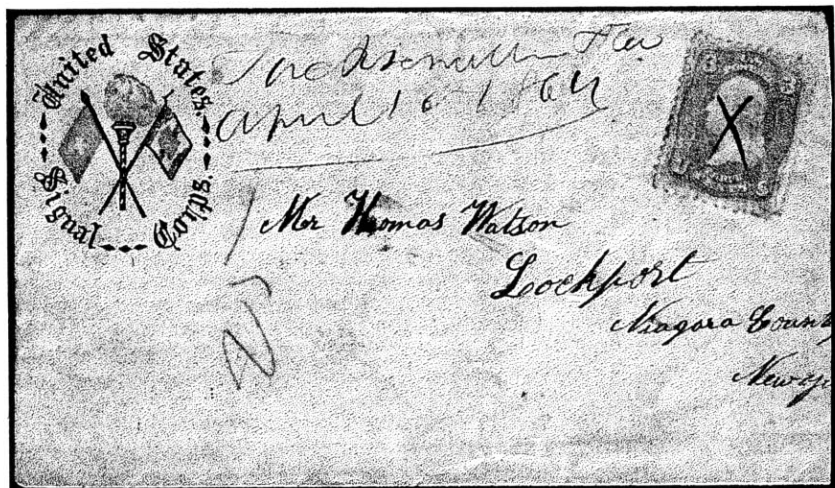 United States
Signal Corps.
Jacksonville Fla
April 16 1864
3 3
Mr Thomas Watson
Lockport
Niagara Coun
New yo